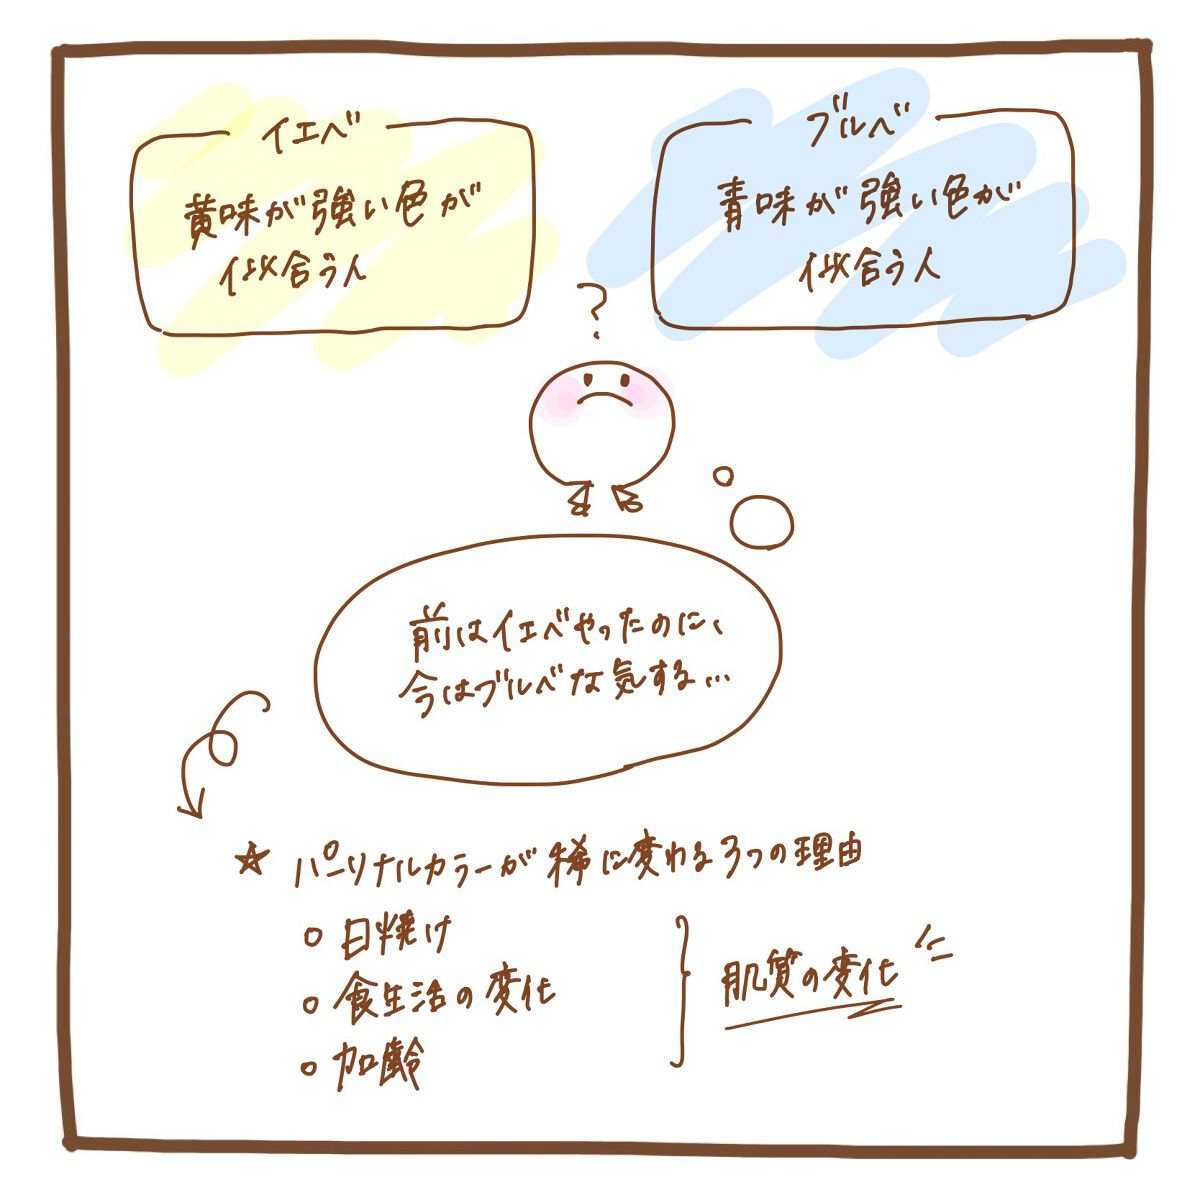 イエベ
黄味が強い色が
似合う人
ブルベ
青味が強い色が
似合う人
?
前はイエベやったのに、
今はブルベな気する...
☆ パーソナルカラーが稀に変わる3つの理由
○ 日焼け
○ 食生活の変化
○ 加齢
肌質の変化